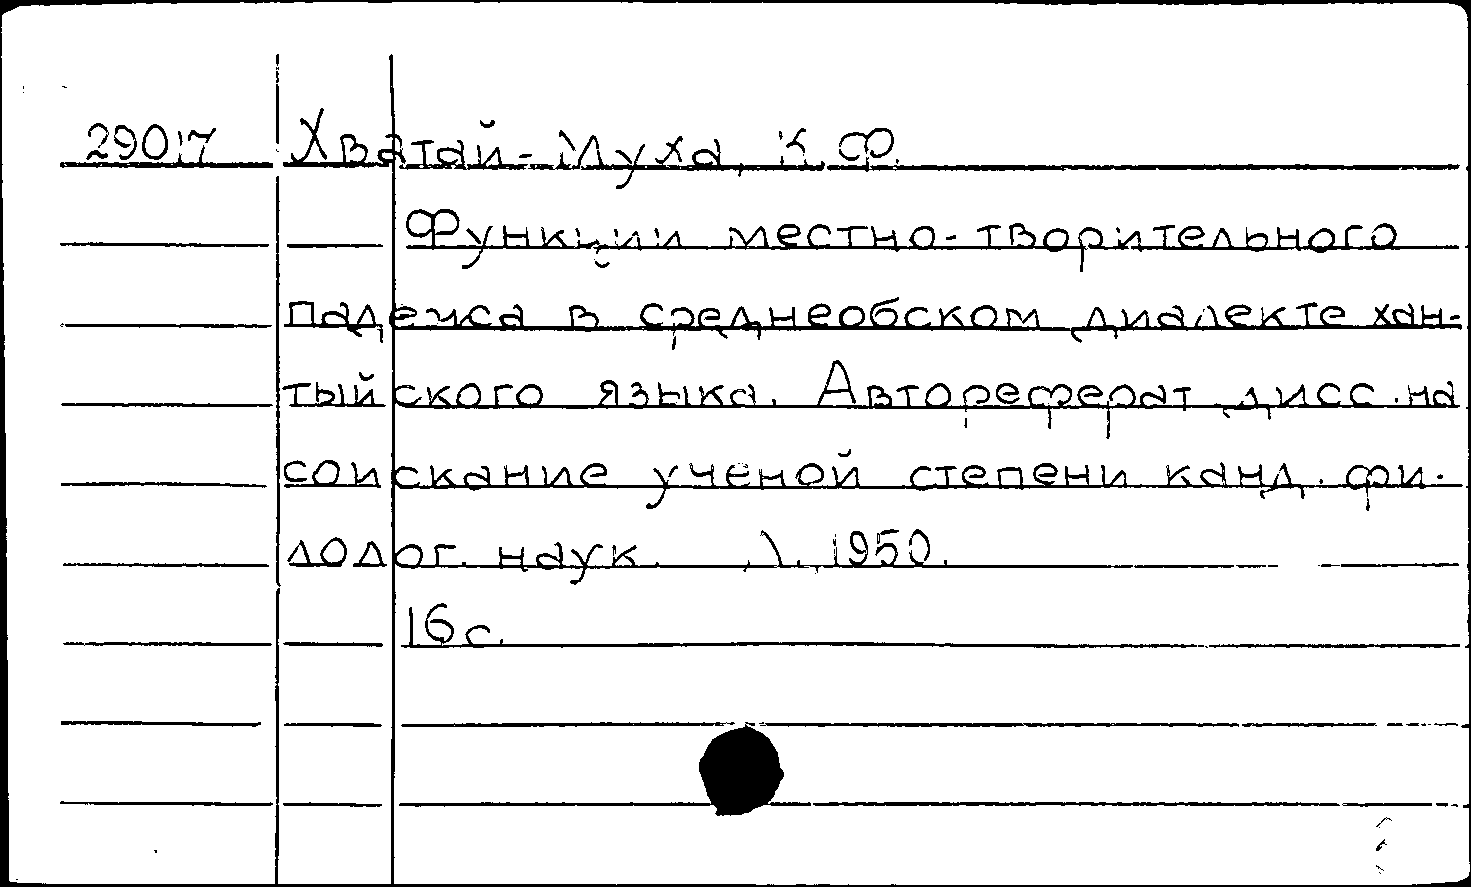 29017 Хватай-Муха, К.Ф.
Функции местно-творительного
падежа в среднеобском диалекте хан-
тыйского языка. Автореферат дисс. на
соискание ученой степени канд. фи-
лолог. наук. Л., 1950.
16 с.